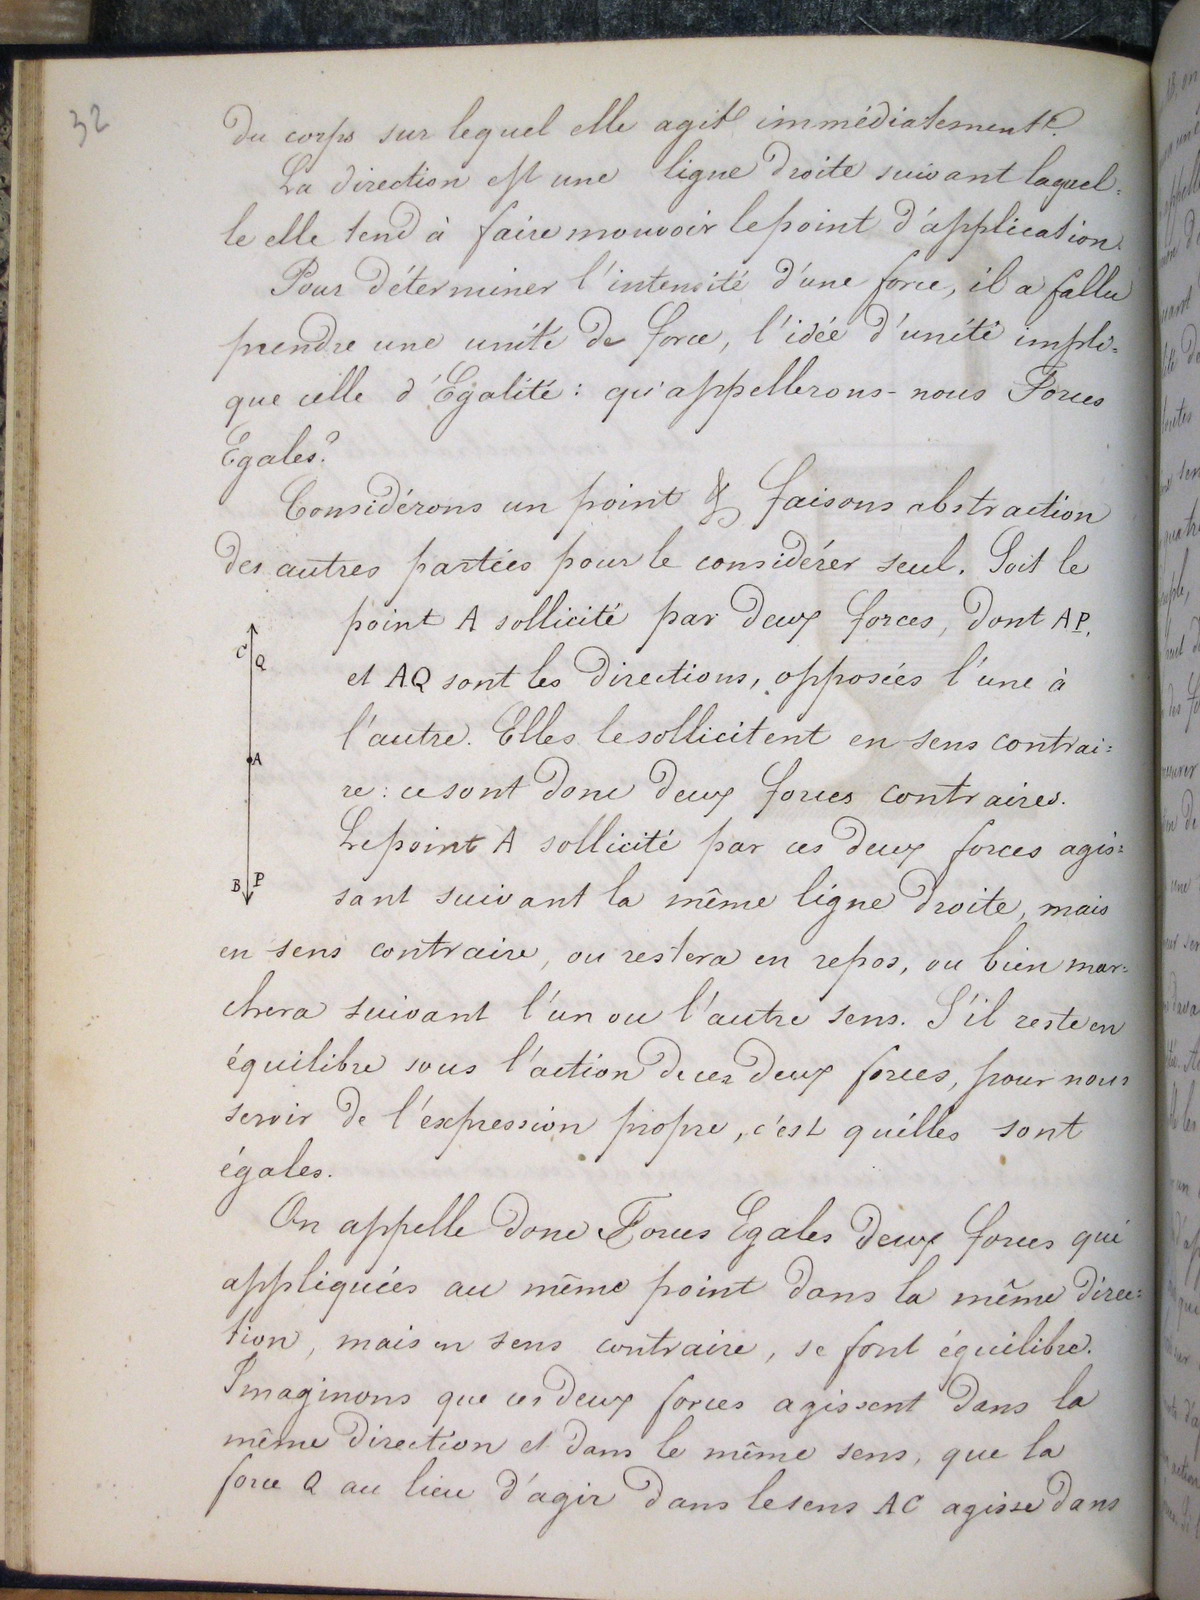 32
du corps sur lequel elle agit immédiatement.
La direction est une ligne droite suivant laquel=
le elle tend à faire mouvoir le point d'application.
Pour déterminer l'intensité d'une force, il a fallu
prendre une unité de force, l'idée d'unité impli=
que celle d'Egalité : qu'appellerons-nous Forces
Egales?
Considérons un point & faisons abstraction
des autres parties pour le considérer seul. Soit le
point A sollicité par deux forces, dont AP.
et AQ sont les directions, opposées l'une à
l'autre. Elles le sollicitent en sens contrai=
re : ce sont donc deux forces contraires.
Le point A sollicité par ces deux forces agis=
sant suivant la même ligne droite, mais
en sens contraire, ou restera en repos, ou bien mar=
chera suivant l'un ou l'autre sens. S'il reste en
équilibre sous l'action de ces deux forces, pour nous
servir de l'expression propre, c'est qu'elles sont
égales.
On appelle donc Forces Egales deux forces qui
appliquées au même point dans la même direc=
tion, mais en sens contraire, se font équilibre.
Imaginons que ces deux forces agissent dans la
même direction et dans le même sens, que la
force Q au lieu d'agir dans le sens AC agisse dans
C Q
A
B P